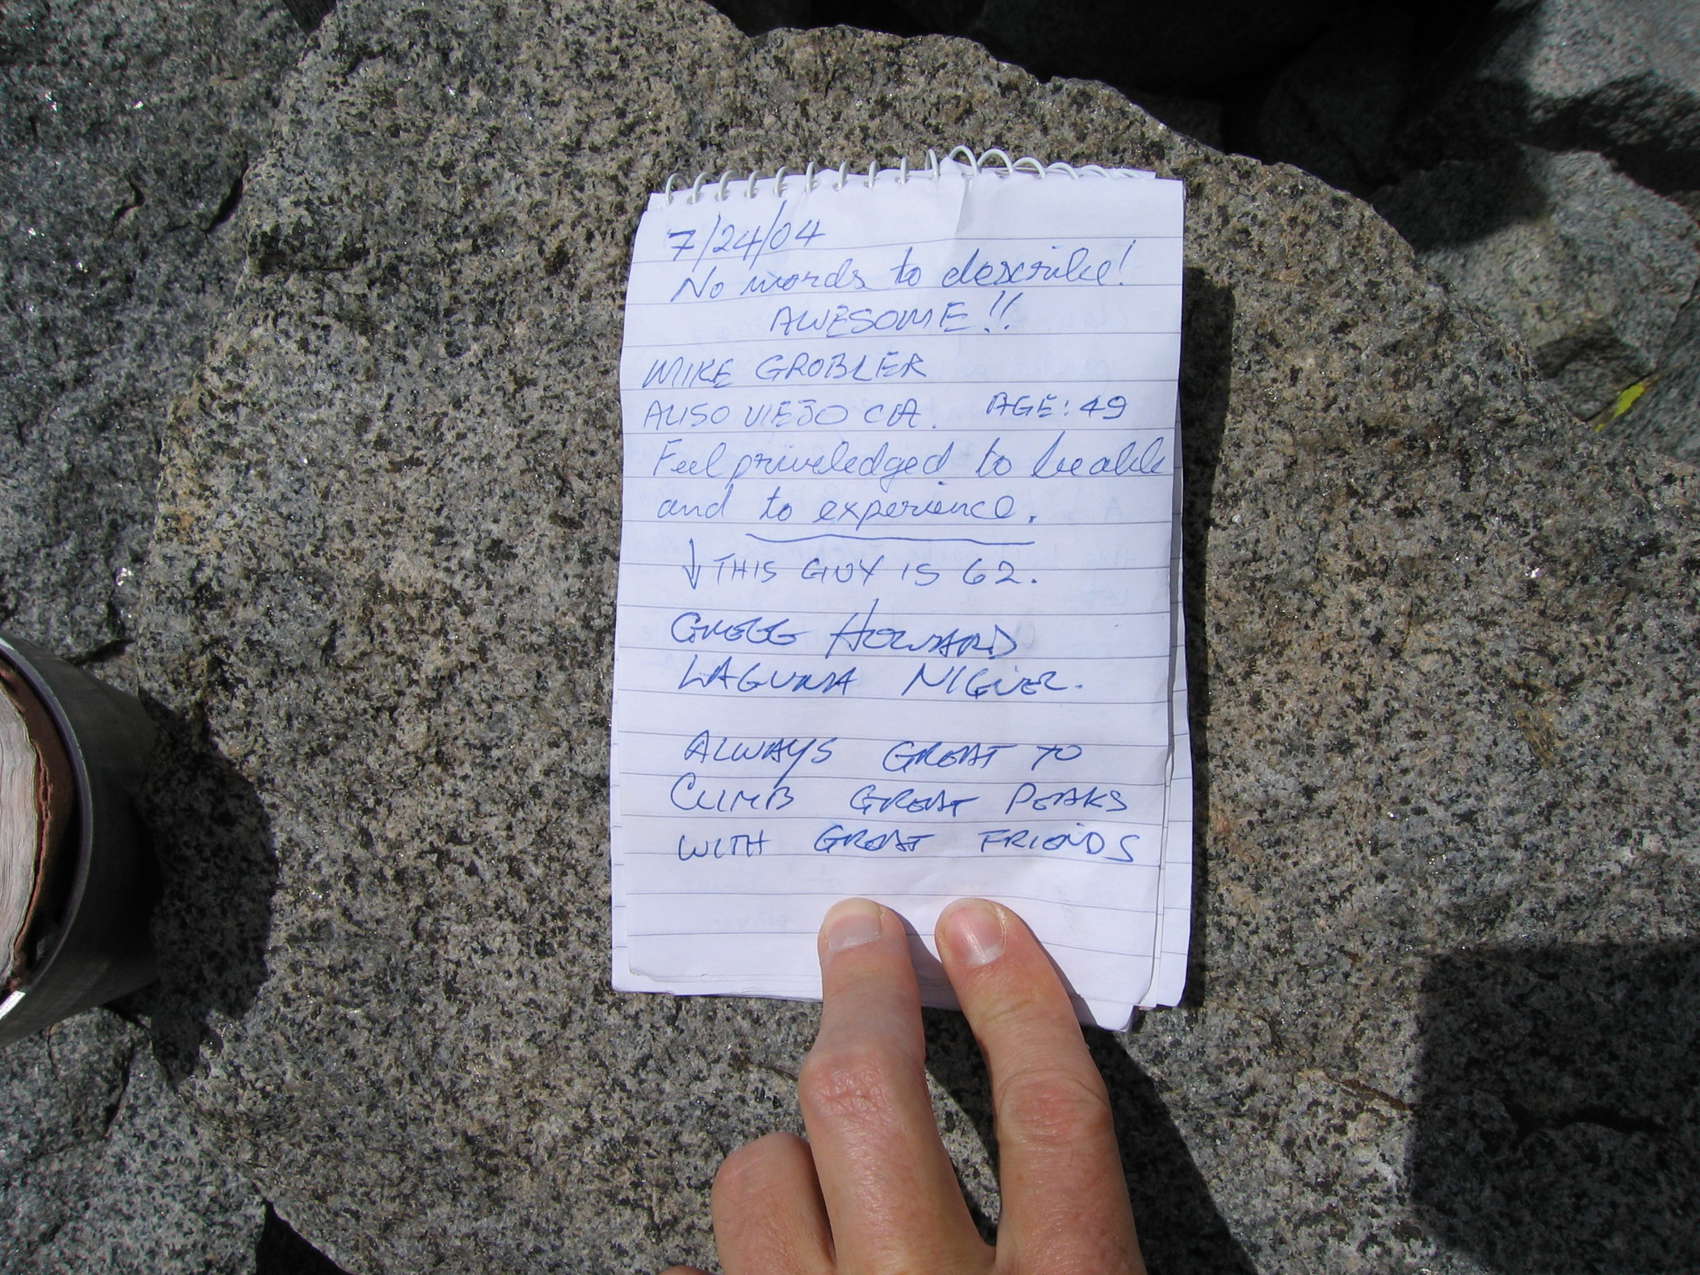 7/24/04
No words to describe!
AWESOME!!
MIKE GROBLER
ALISO VIEJO CA. AGE: 49
Feel priveledged to be able
and to experience.
↓ THIS GUY IS 62.
GREGG HOWARD
LAGUNA NIGUEL.
ALWAYS GREAT TO
CLIMB GREAT PEAKS
WITH GREAT FRIENDS